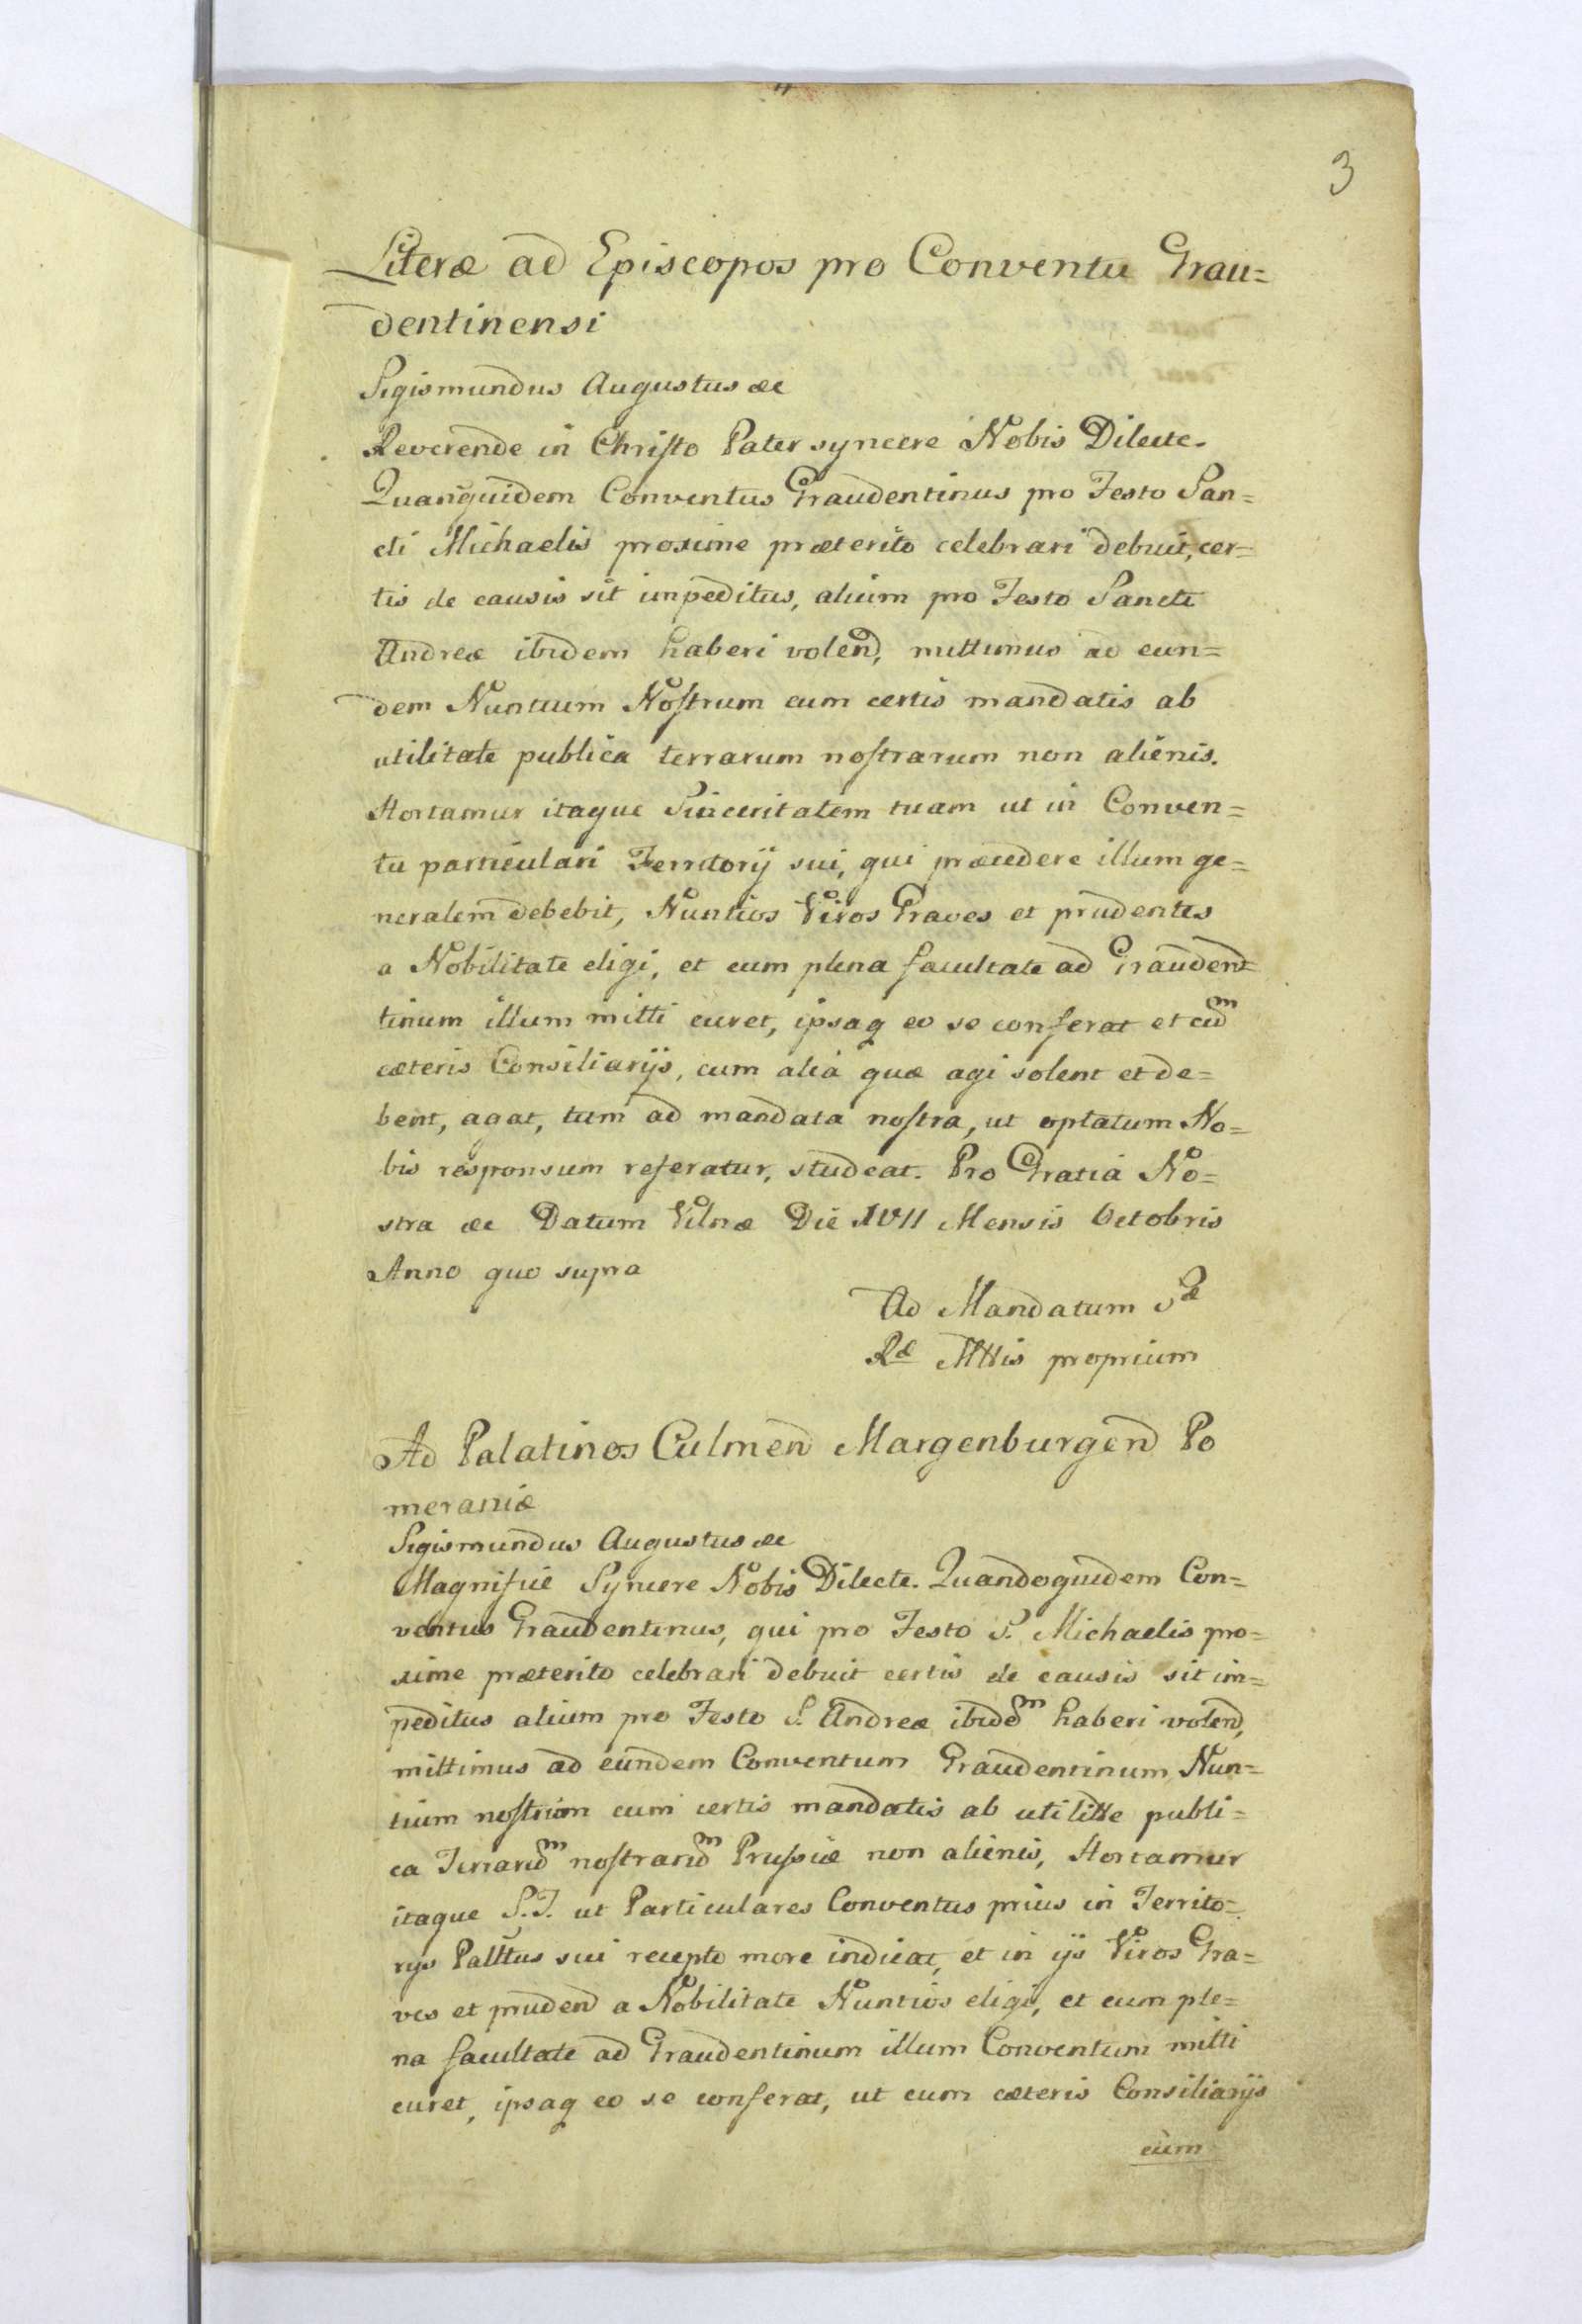 3
Literæ ad Episcopos pro Conventu Grau=
dentinensi
Sigismundus Augustus &c
Reverende in Christo Pater syncere Nobis Dilecte.
Quanquidem Conventus Graudentinus pro Festo San=
cti Michaelis proxime præterito celebrari debuit, cer=
tis de causis sit impeditus, alium pro Festo Sancti
Andreæ ibidem haberi volend, mittimus ad eun=
dem Nuntium Nostrum cum certis mandatis ab
utilitate publica terrarum nostrarum non alienis.
Hortamur itaque Sinceritatem tuam ut in Conven=
tu particulari Territorij sui, qui præcedere illum ge=
neralem debebit, Nuntios Viros Graves et prudentes
a Nobilitate eligi, et cum plena facultate ad Graudend=
tinum illum mitti curet, ipsaq eo se conferat et cum
cæteris Consiliarijs, cum alia quæ agi solent et de=
bent, agat, tum ad mandata nostra, ut optatum No=
bis responsum referatur, studeat. Pro Gratia No=
stra &c Datum Vilnæ Die XVII Mensis Octobris
Anno quo supra
Ad Mandatum Sæ
Ræ Mttis proprium
Ad Palatinos Culmen Margenburgen Po
meraniæ
Sigismundus Augustus &c
Magnifice Syncere Nobis Dilecte. Quandoquidem Con=
ventus Graudentinus, qui pro Festo S. Michaelis pro=
xime præterito celebrari debuit certis de causis sit im=
peditus alium pro Festo S. Andreæ ibidem haberi volend,
mittimus ad eundem Conventum Graudentinum Nun=
tium nostrum cum certis mandatis ab utilitte publi=
ca Terrarum nostrarum Prussiæ non alienis, Hortamur
itaque S.T. ut Particulares Conventus prius in Territo=
rijs Palttus sui recepto more indicat, et in ijs Viros Gra=
ves et pruden a Nobilitate Nuntios eligi, et cum ple=
na facultate ad Graudentinum illum Conventum mitti
curet, ipsaq eo se conferat, ut cum cæteris Consiliarijs
cum